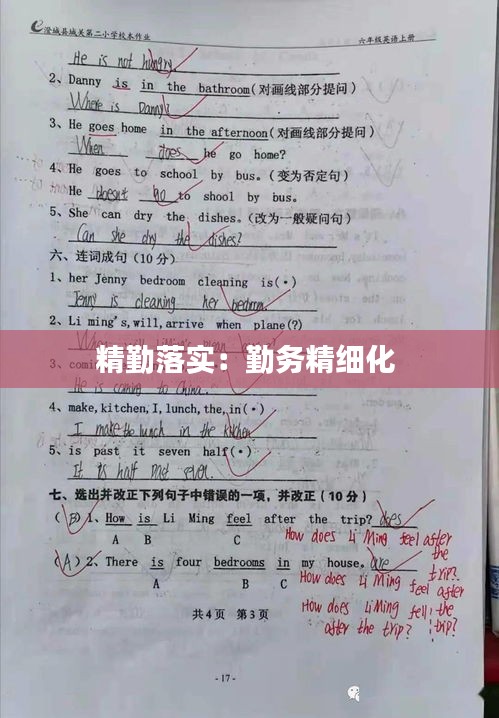 澄城县城关第二小学校本作业 六年级英语上册
He is not hungry.
2、Danny is in the bathroom(对画线部分提问)
Where is Danny?
3、He goes home in the afternoon(对画线部分提问)
When does he go home?
4、He goes to school by bus。(变为否定句)
He doesn't go to shool by bus.
5、She can dry the dishes.(改为一般疑问句)
Can she dry the dishes?
六、连词成句(10分)
1、her Jenny bedroom cleaning is(•)
Jenny is cleaning her bedroom.
2、Li ming's,will,arrive when plane(?)
When will
精勤落实：勤务精细化
3、coming
He is coming to China.
4、make,kitchen,I,lunch,the,in(•)
I make the lunch in the kitchen
5、is past it seven half(•)
It is half past seven.
七、选出并改正下列句子中错误的一项，并改正(10分)
(B)1、How is Li Ming feel after the trip? does
A B C
How does Li Ming feel after the trip?
(A)2、There is four bedrooms in my house. are
A B C
How does Li Ming feel after the trip?
How does Li Ming fell after the trip?
共4页 第3页
-17-